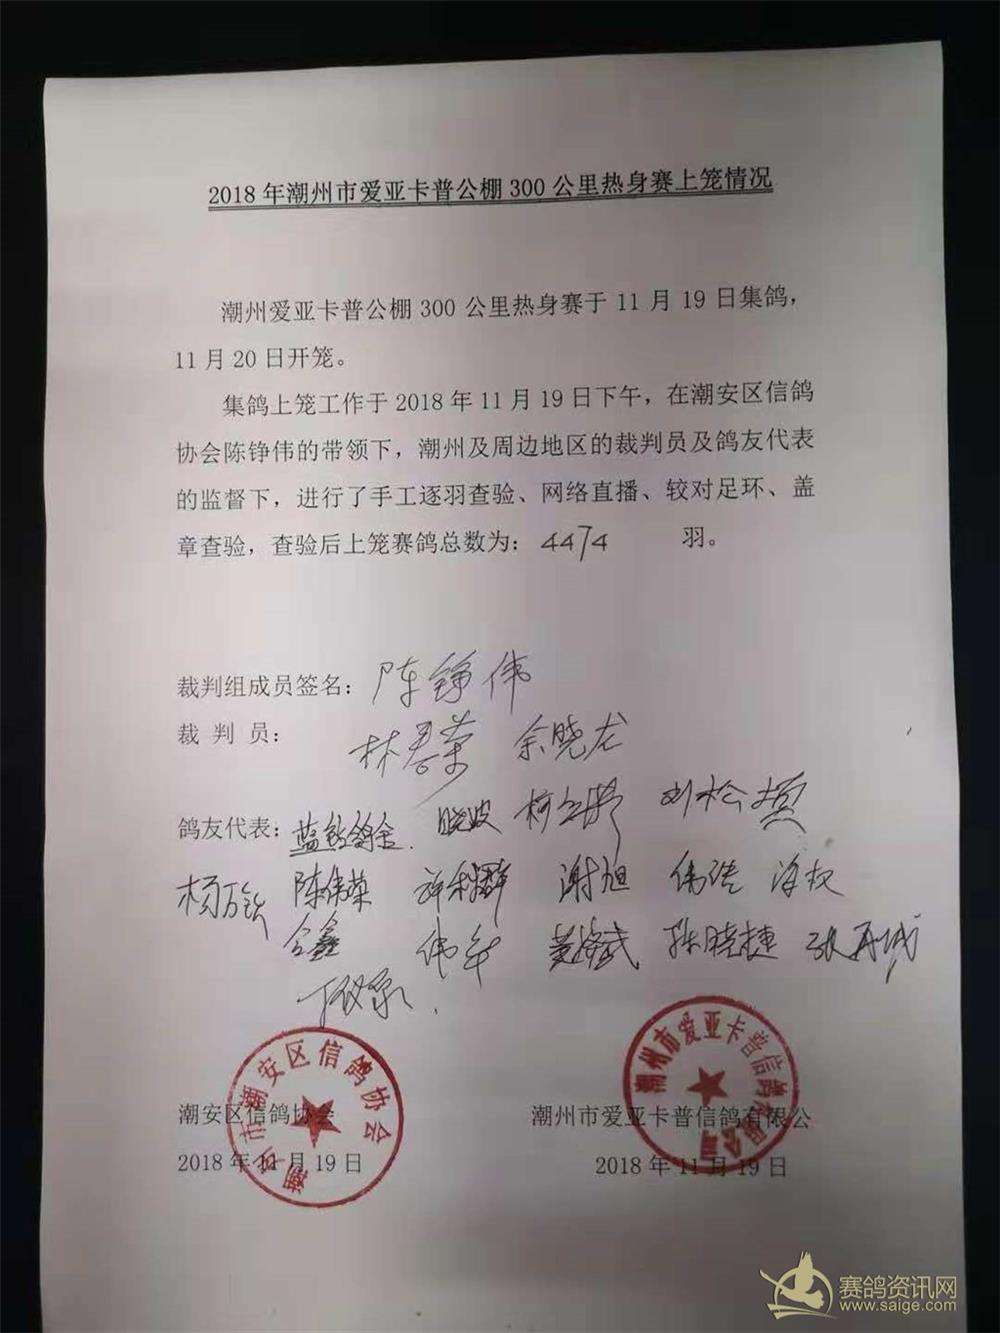 2018年潮州市爱亚卡普公棚300公里热身赛上笼情况
潮州爱亚卡普公棚300公里热身赛于11月19日集鸽，
11月20日开笼。
集鸽上笼工作于2018年11月19日下午，在潮安区信鸽
协会陈铮伟的带领下，潮州及周边地区的裁判员及鸽友代表
的监督下，进行了手工逐羽查验、网络直播、较对足环、盖
章查验，查验后上笼赛鸽总数为：4474 羽。
裁判组成员签名：陈铮伟
裁 判 员：
余晓龙
鸽友代表：晓波 刘松
陈伟荣 谢旭 伟浩 海权
陈晓捷
潮安区信鸽协会 潮州市爱亚卡普信鸽有限公
2018年11月19日 2018年11月19日
潮安市潮安区信鸽协会
潮州市爱亚卡普信鸽有限公司
赛鸽资讯网
www.saige.com